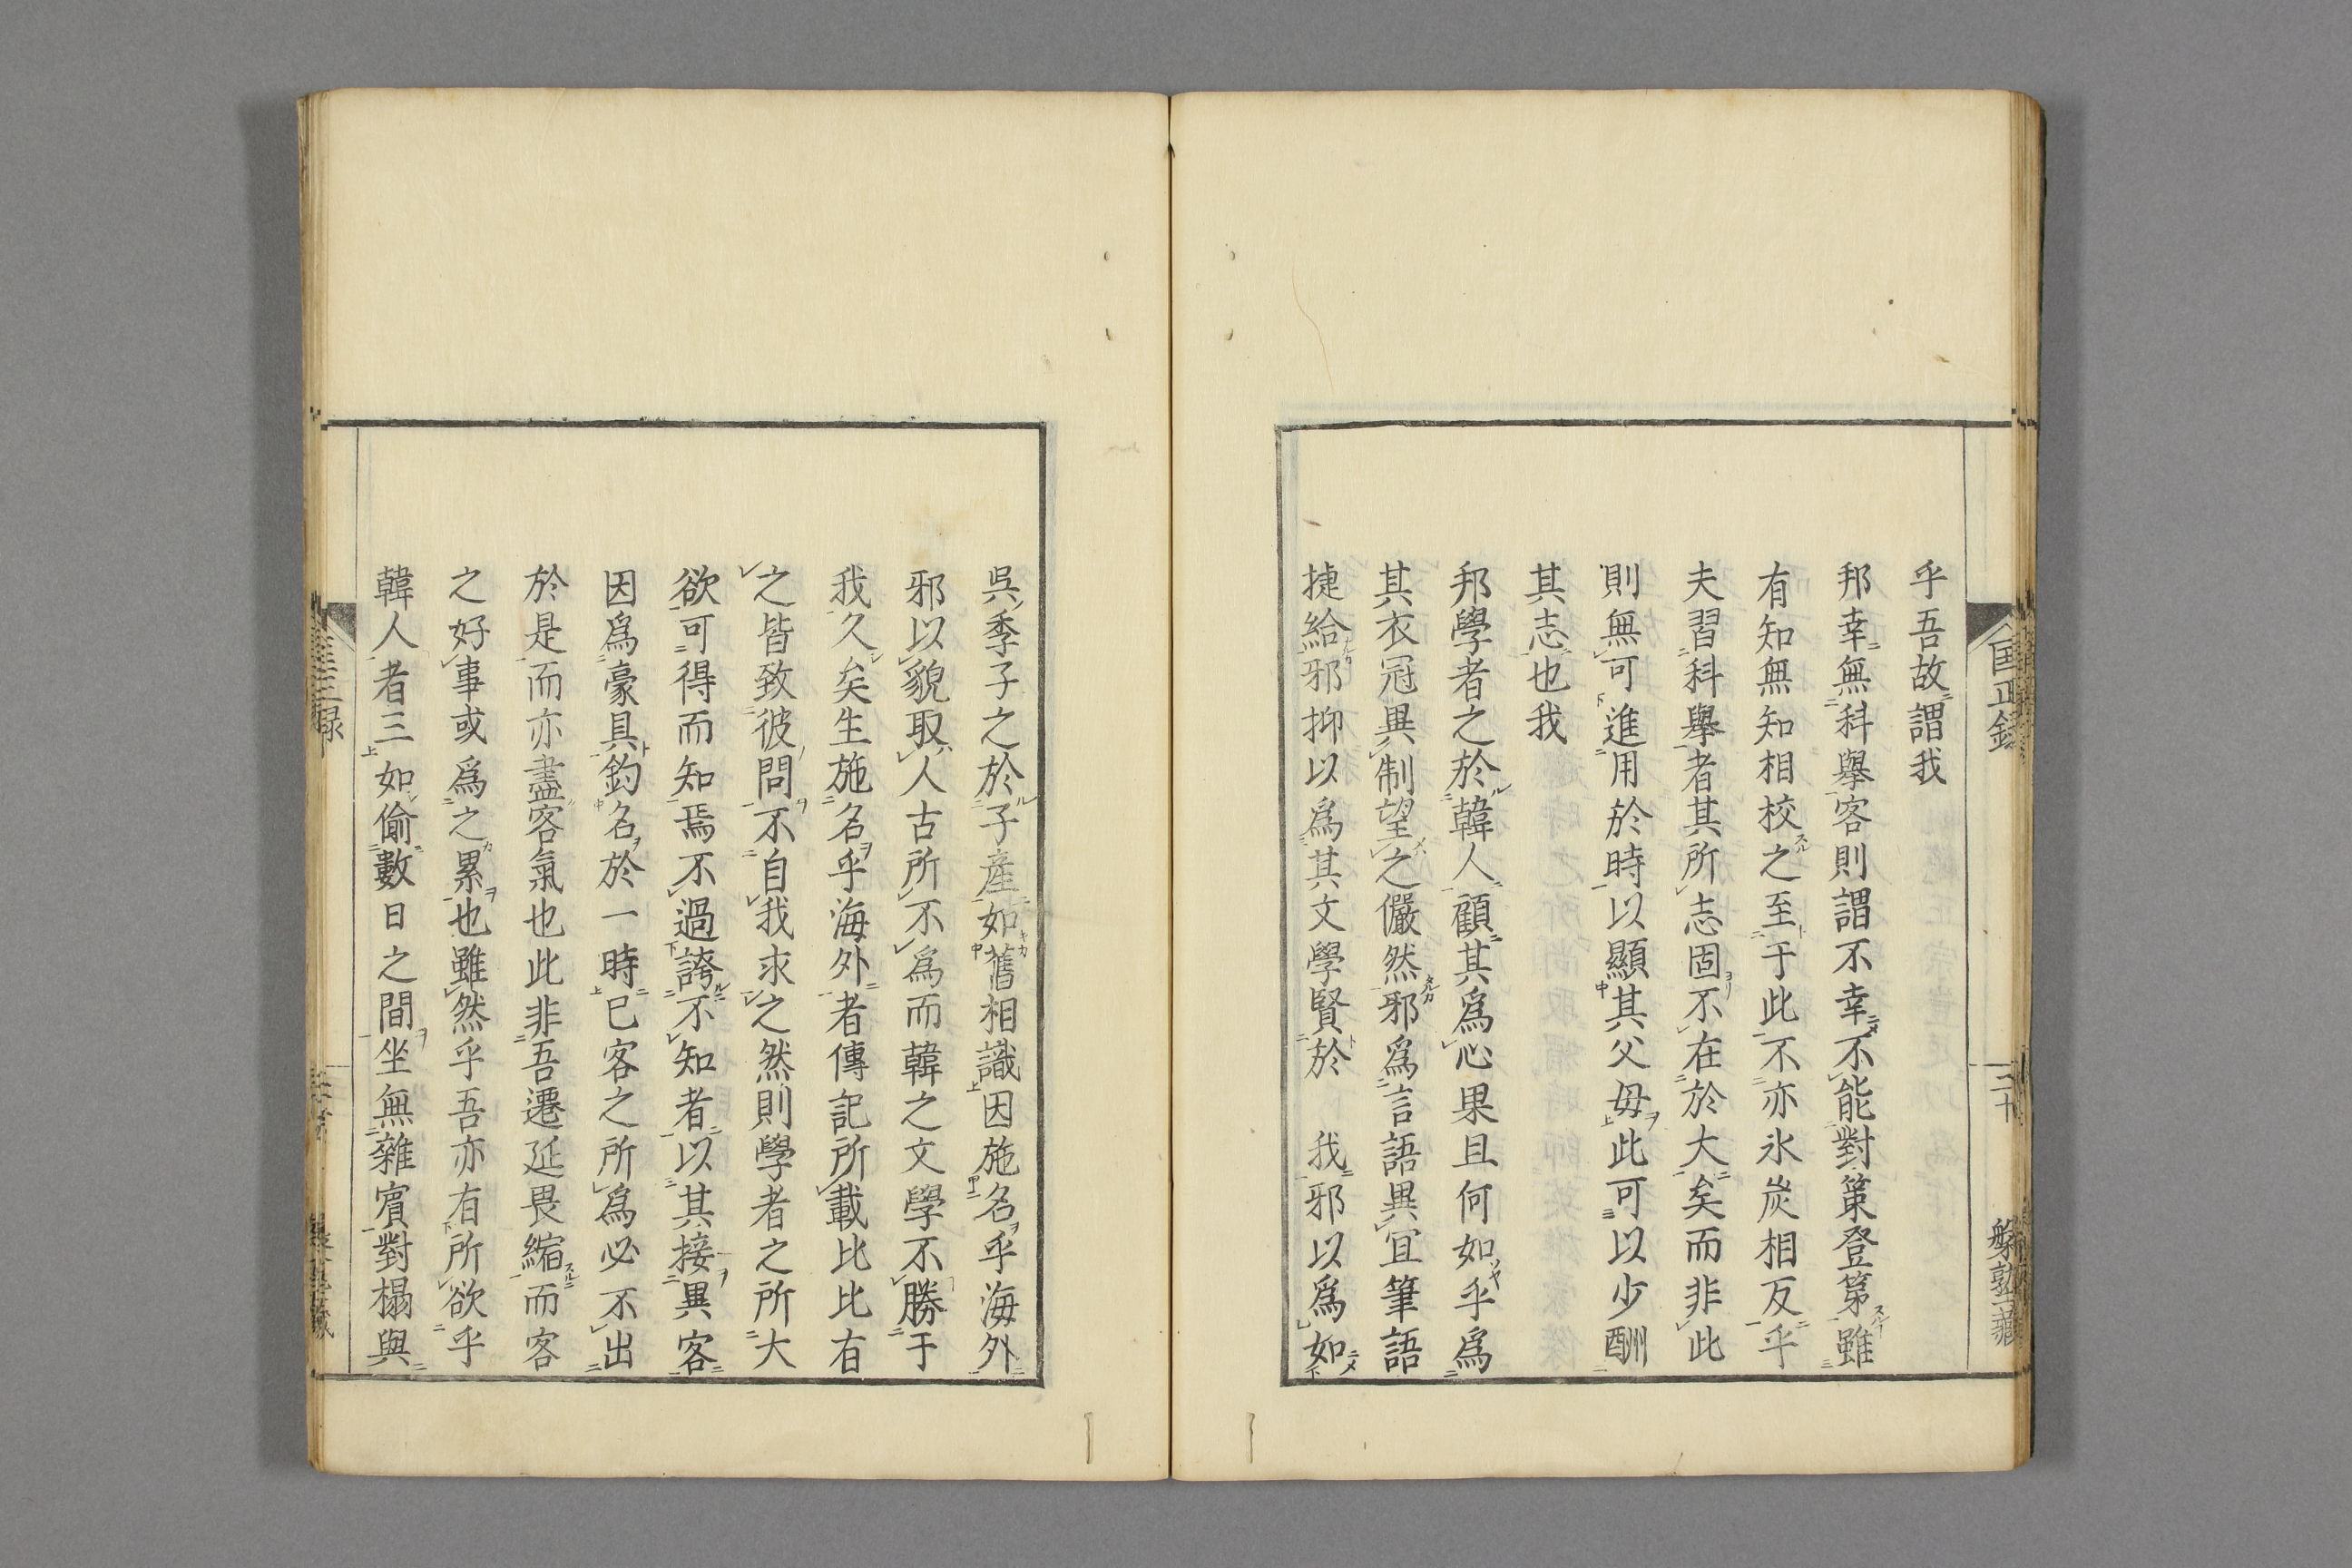 乎吾故謂我
邦幸無科擧客則謂不幸不能對策登第雖
有知無知相校之至于此不亦氷炭相反乎
夫習科擧者其所志固不在於大矣而非此
則無可進用於時以顯其父母此可以少酬
其志也我
邦學者之於韓人顧其爲心果且何如乎爲
其衣冠異制望之儼然邪爲言語異冝筆語
捷給邪抑以爲其文學賢於 我邪以爲如
吳季子之於子産如舊相識因施名乎海外
邪以貌取人古所不爲而韓之文學不勝于
我久矣生施名乎海外者傳記所載比比有
之皆致彼問不自我求之然則學者之所大
欲可得而知焉不過誇不知者以其接異客
因爲豪具釣名於一時已客之所爲必不出
於是而亦盡客氣也此非吾遷延畏縮而客
之好事或爲之累也雖然乎吾亦有所欲乎
韓人者三如偷數日之間坐無雜賓對榻與